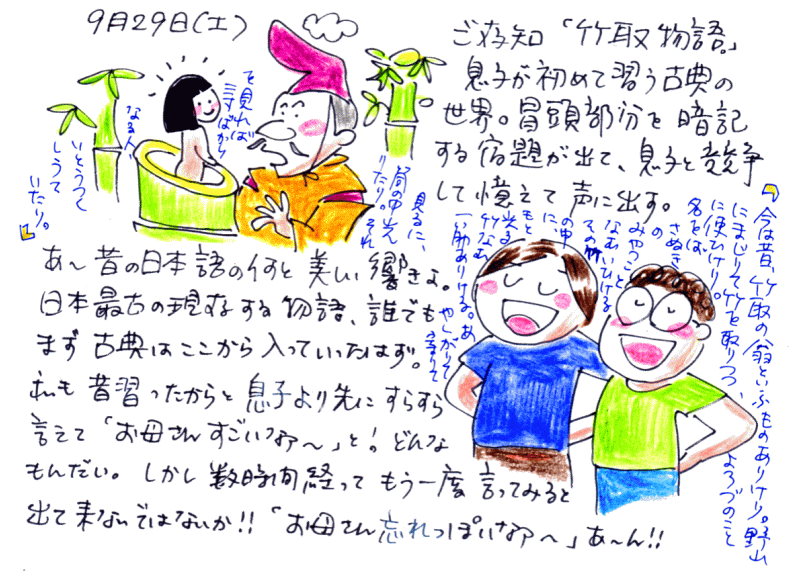 9月29日(土)
ご存知「竹取物語。」
息子が初めて習う古典の
世界。冒頭部分を暗記
する宿題が出て、息子と競争
して憶えて声に出す。
「今は昔、竹取の翁といふものありけり。野山
にまじりて竹を取りつつ、よろづのこと
に使ひけり。
名をば、
さぬき
の
みやつこと
なむいひける
その竹
の中
に、
もと
光る
竹なむ
一筋ありける。あ
やしがりて
寄りて
見るに、
筒の中光
りたり。それ
を見れば
三寸ばかり
なる人、
いとうつく
しうて
いたり。」
あ〜昔の日本語の何と美しい響きよ。
日本最古の現存する物語、誰でも
まず古典はここから入っていったはず。
私も昔習ったからと息子より先にすらすら
言えて「お母さんすごいなァ〜」と!どんな
もんだい。しかし数時間経ってもう一度言ってみると
出て来ないではないか!!「お母さん忘れっぽいなァ〜」あ〜ん!!